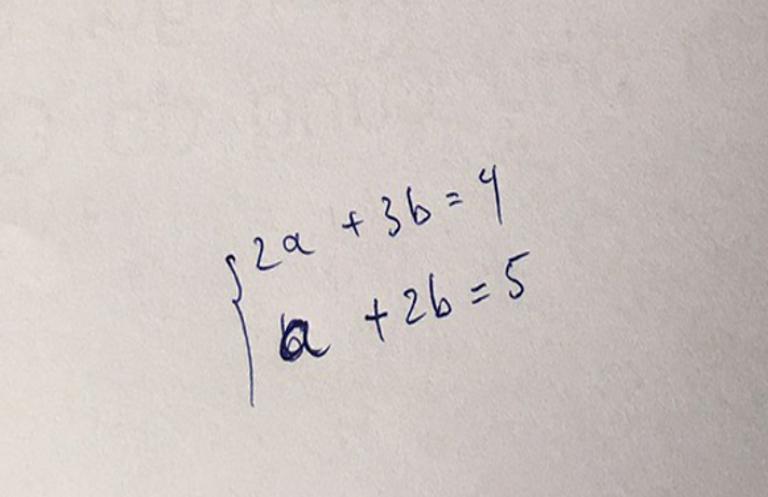 2a + 3b = 4
a + 2b = 5